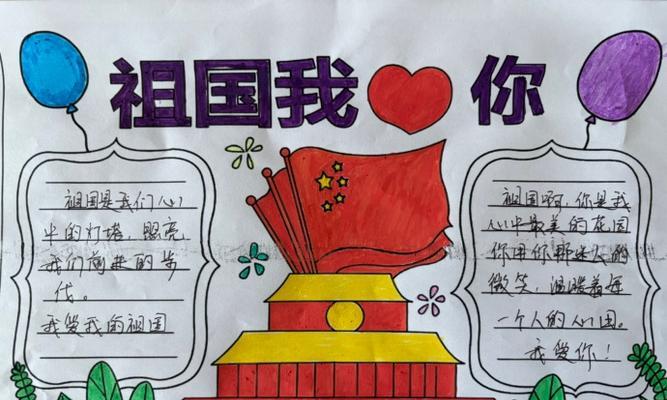 祖国我你
祖国是我们心
中的灯塔，照亮
我们前进的步
伐。
我爱我的祖国
祖国啊，你是我
心中最美的花园
你用你那迷人的
微笑，温暖着每
一个人的心田。
我爱你！